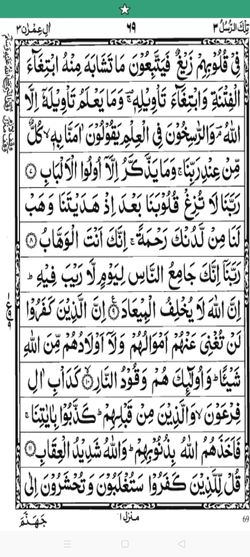 تلك الرسل ٣ ٦٩ اٰل عمرٰن ٣
فِيْ قُلُوْبِهِمْ زَيْغٌ فَيَتَّبِعُوْنَ مَا تَشَابَهَ مِنْهُ ابْتِغَآءَ
الْفِتْنَةِ وَابْتِغَآءَ تَاْوِيْلِهٖ ۚ وَمَا يَعْلَمُ تَاْوِيْلَهٗٓ اِلَّا
اللّٰهُ ۘ وَالرّٰسِخُوْنَ فِي الْعِلْمِ يَقُوْلُوْنَ اٰمَنَّا بِهٖ ۙ كُلٌّ
مِّنْ عِنْدِ رَبِّنَا ۚ وَمَا يَذَّكَّرُ اِلَّآ اُولُوا الْاَلْبَابِ ۝٧
رَبَّنَا لَا تُزِغْ قُلُوْبَنَا بَعْدَ اِذْ هَدَيْتَنَا وَهَبْ
لَنَا مِنْ لَّدُنْكَ رَحْمَةً ۚ اِنَّكَ اَنْتَ الْوَهَّابُ ۝٨
رَبَّنَآ اِنَّكَ جَامِعُ النَّاسِ لِيَوْمٍ لَّا رَيْبَ فِيْهِ ؕ
اِنَّ اللّٰهَ لَا يُخْلِفُ الْمِيْعَادَ ۝٩ اِنَّ الَّذِيْنَ كَفَرُوْا
لَنْ تُغْنِيَ عَنْهُمْ اَمْوَالُهُمْ وَلَآ اَوْلَادُهُمْ مِّنَ اللّٰهِ
شَيْـًٔا ؕ وَاُولٰٓئِكَ هُمْ وَقُوْدُ النَّارِ ۝١٠ كَدَاْبِ اٰلِ
فِرْعَوْنَ ۙ وَالَّذِيْنَ مِنْ قَبْلِهِمْ ؕ كَذَّبُوْا بِاٰيٰتِنَا ۚ
فَاَخَذَهُمُ اللّٰهُ بِذُنُوْبِهِمْ ؕ وَاللّٰهُ شَدِيْدُ الْعِقَابِ ۝١١
قُلْ لِّلَّذِيْنَ كَفَرُوْا سَتُغْلَبُوْنَ وَتُحْشَرُوْنَ اِلٰى
منزل ١ جَهَنَّمَ
69